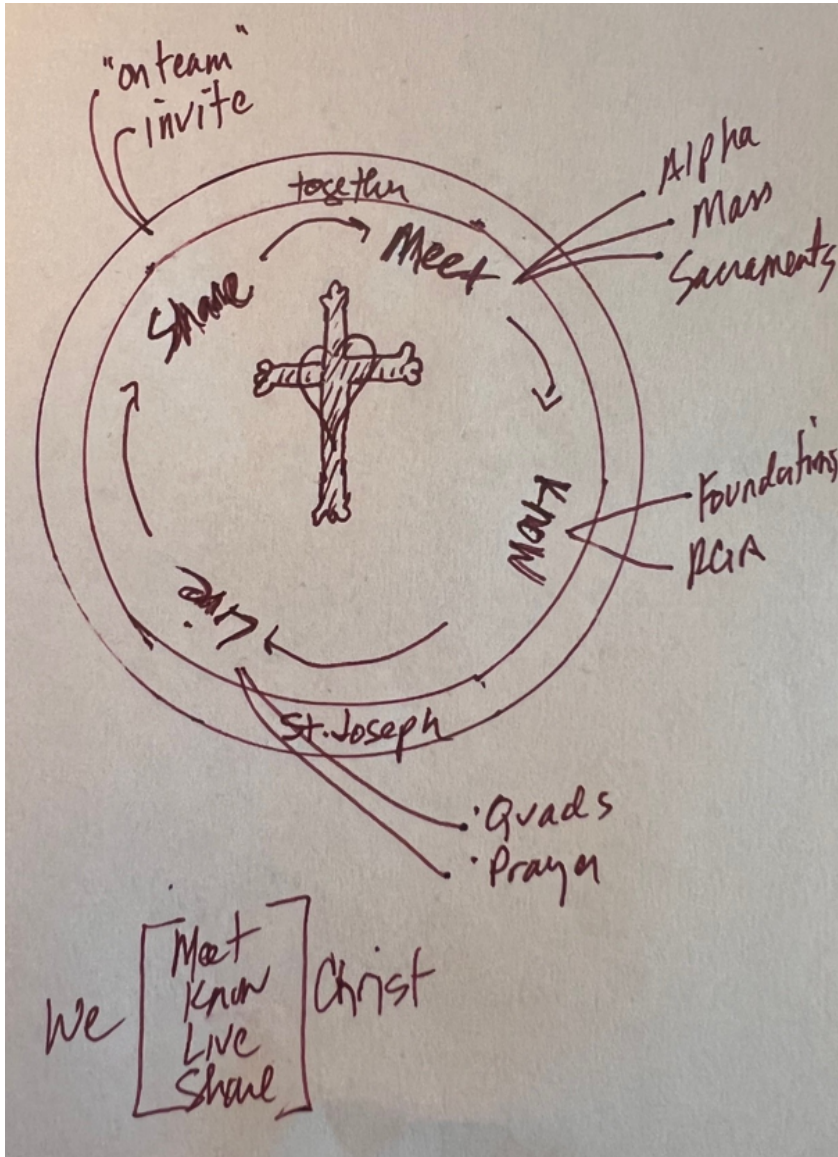 "on team"
invite
together
Share
Meet
Alpha
Mass
Sacraments
Know
Foundations
RGA
Live
St. Joseph
• Quads
• Prayer
We
Meet
Know
Live
Share
Christ